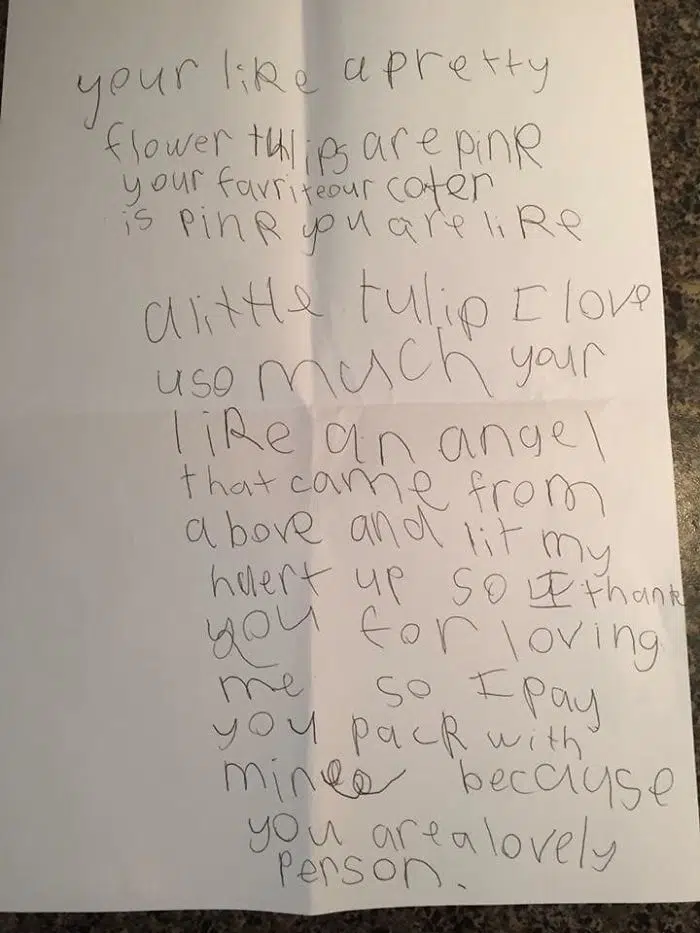 your like a pretty
flower tulips are pink
your favriteour coler
is pink you are like
a little tulip I love
u so much your
like an angel
that came from
above and lit my
huert up so I thank
you for loving
me so I pay
you pack with
mine becauyse
you are a lovely
person.